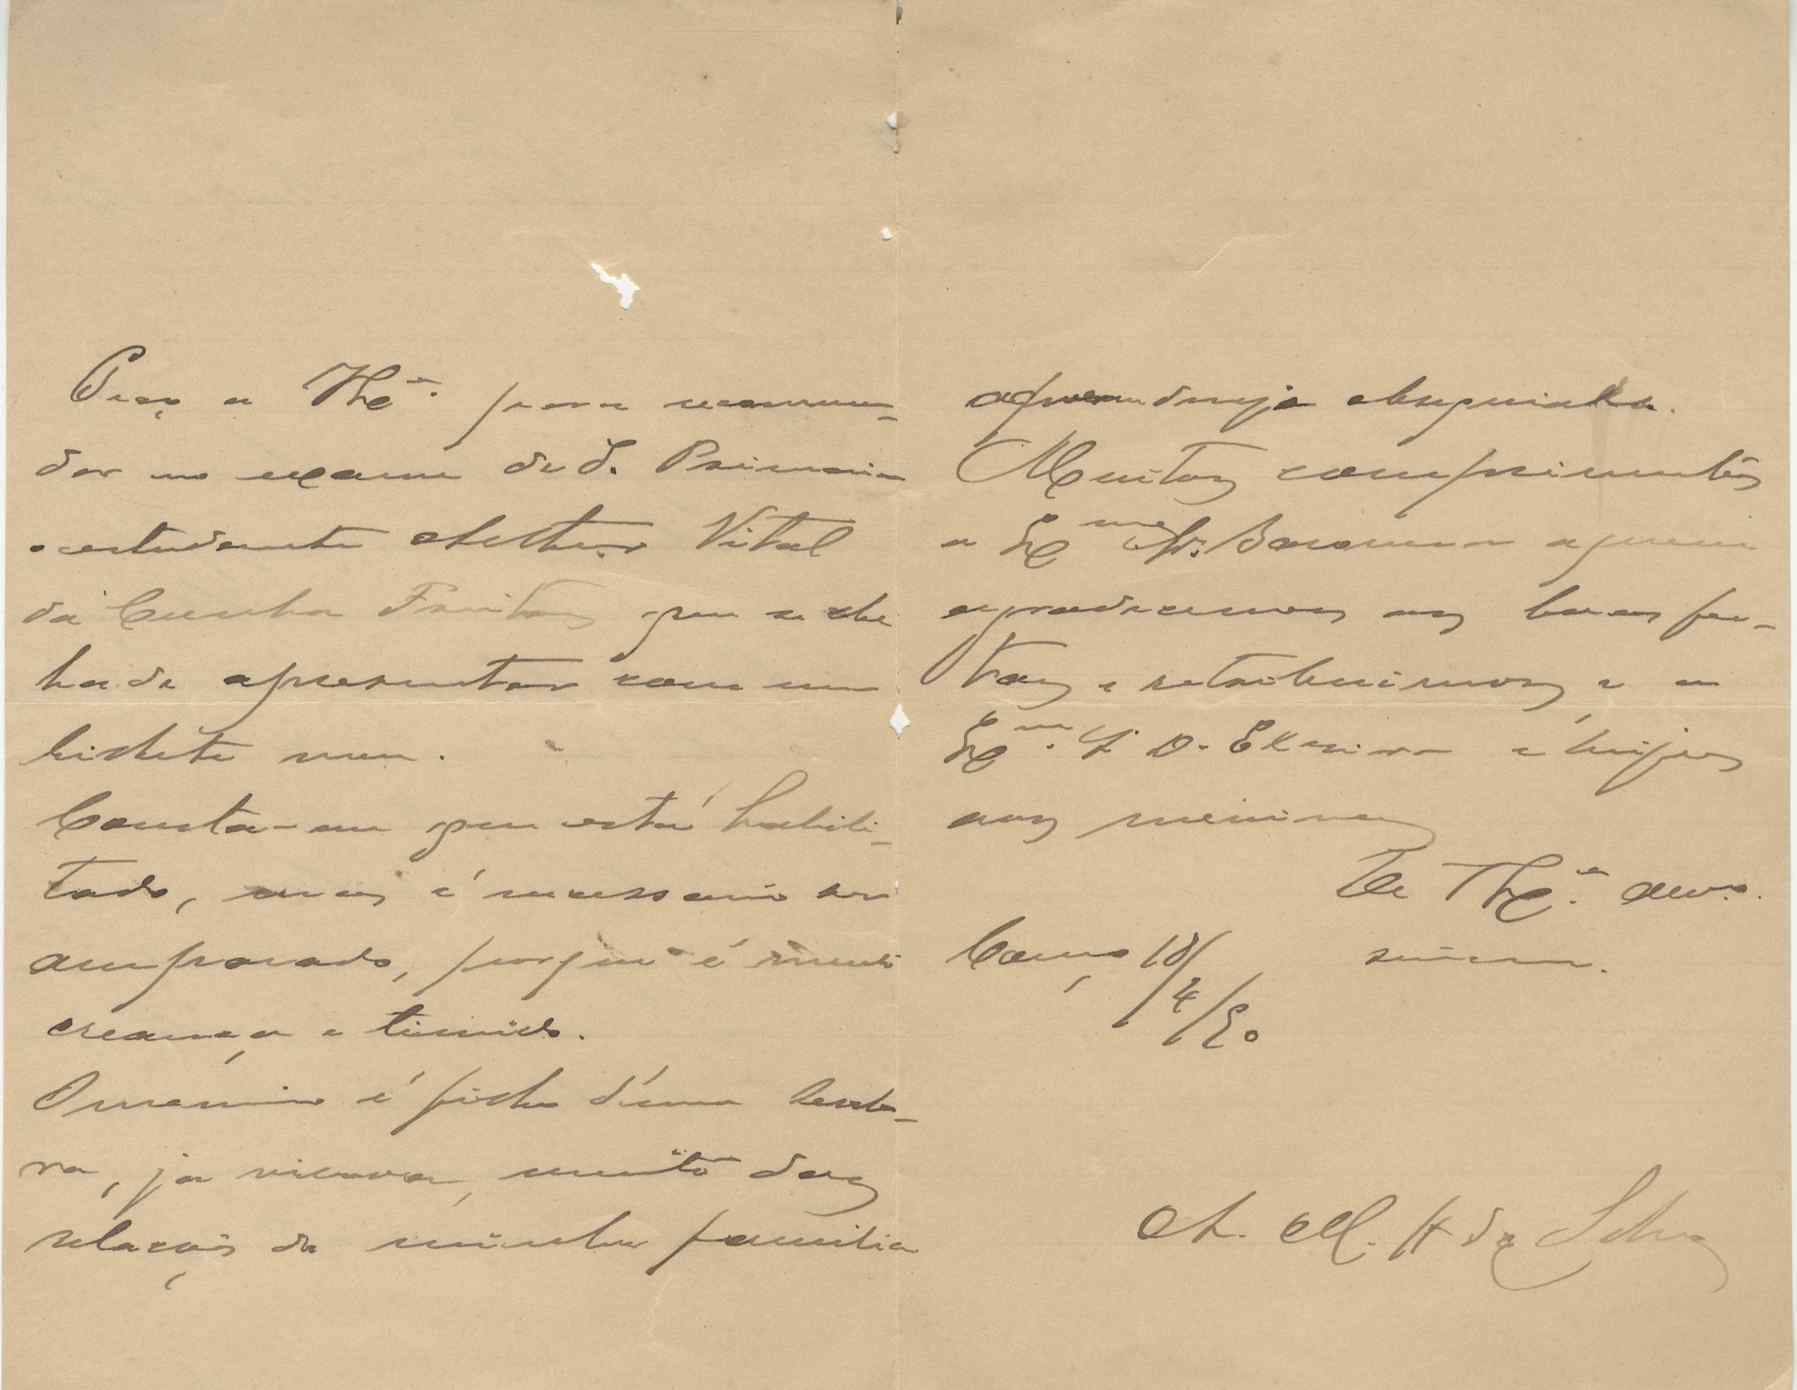 Peço a V.Exª. para recommen-
dar no exame de I. Primaria
o estudante Arthur Vital
da Cunha Freitas que se lhe
ha de apresentar com um
bilhete meu.
Consta-me que está habili-
tado, mas é necessario ser
amparado, porque é muito
creança e timido.
O menino é filho d'uma senho-
ra, já viuva, muito das
relações da minha familia
a quem desejo obsequiar.
Muitos comprimentos
a Exma Sr. Baroneza a quem
agradecemos as boas fes-
tas e retribuimos, e a
Exm. Sr D. Elzira e beijos
aos meninos
De V.Exª.
Caços 18/4/90
A. M. H da Silva